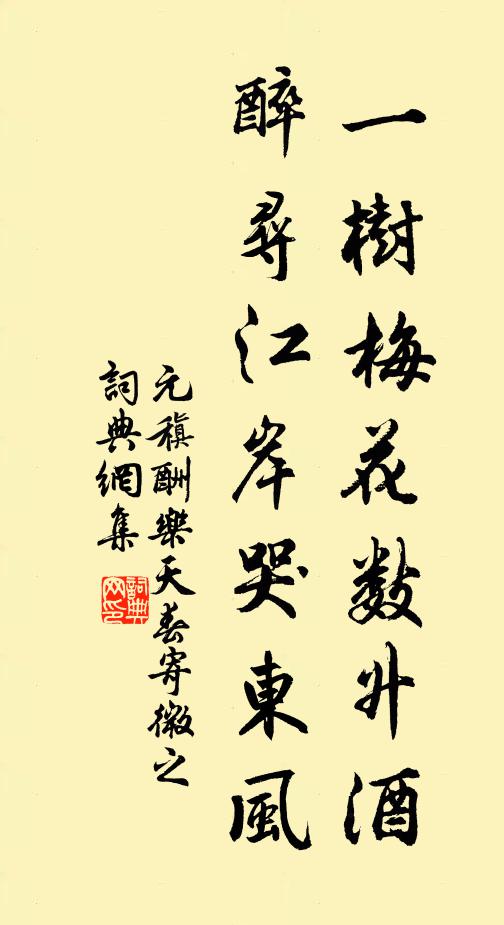 一樹梅花數升酒
醉尋江岸哭東風
元稹酬樂天春寄微之
詞典網集
詞典網印